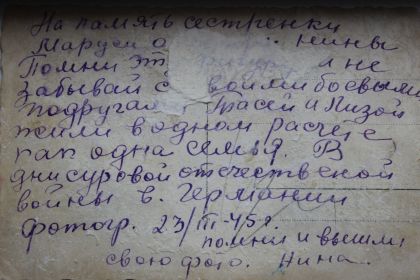 На память сестренки
Маруси о Нины
Помни эт фигуру и не
забывай с воими боевыми
подругам Тасей и Лизой
жили в одном расчете
как одна семья. В
дни суровой отечественой
войны в. Германии
фотогр. 23/III-45г.
помни и вышли
свою фото. Нина.